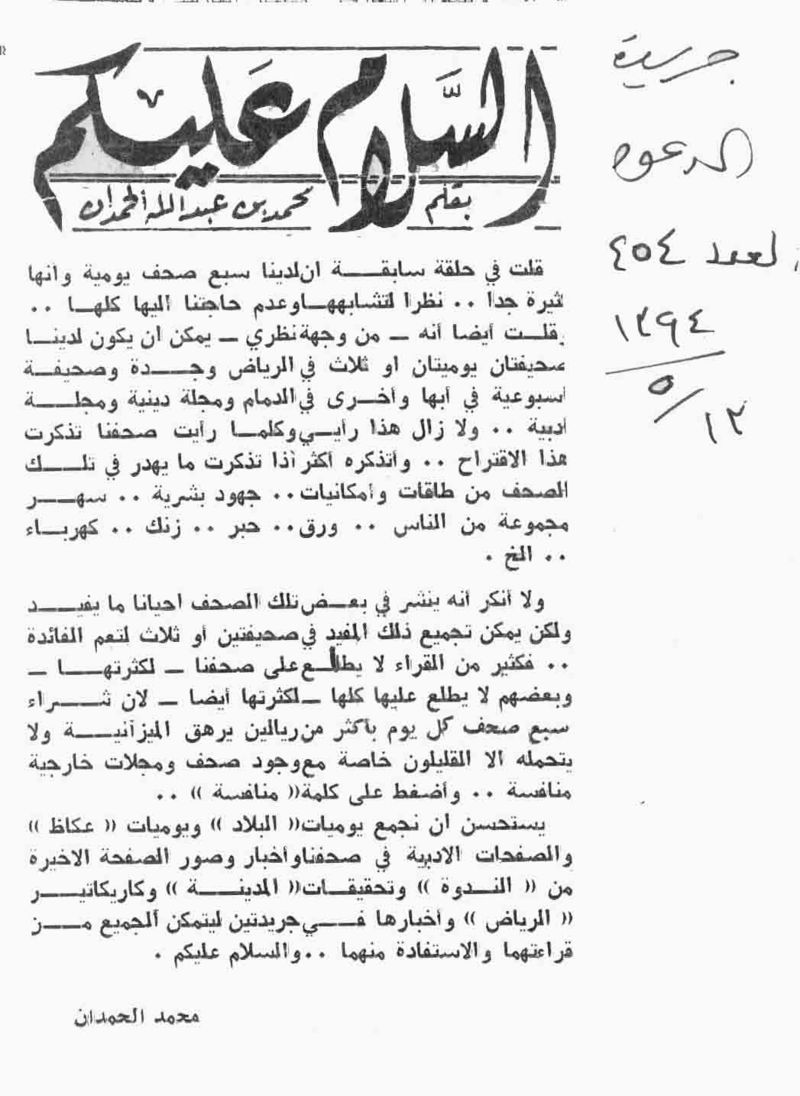 السَّلام عَليكم
بقلم محمد بن عبدالله الحمدان
جريدة
الدعوة
العدد ٤٥٤
١٣٩٤
٥/١٢
قلت في حلقة سابقـــة ان لدينا سبع صحف يومية وأنها
كثيرة جدا .. نظرا لتشابههـا وعدم حاجتنا اليها كلهـا ..
وقلـت أيضا أنه ـ من وجهة نظري ـ يمكن ان يكون لدينـا
صحيفتان يوميتان او ثلاث في الرياض وجـدة وصحيفـة
أسبوعية في أبها وأخـرى في الدمام ومجلة دينية ومجلـة
أدبية .. ولا زال هذا رأيـي وكلمـا رأيت صحفنا تذكرت
هذا الاقتراح .. وأتذكره أكثر أذا تذكرت ما يهدر في تلـك
الصحف من طاقات وأمكانيات .. جهود بشرية .. سهـر
مجموعة من الناس .. ورق .. حبر .. زنك .. كهربـاء
.. الخ .
ولا أنكر أنه ينشر في بعـض تلك الصحف احيانا ما يفيـد
ولكن يمكن تجميع ذلك المفيد في صحيفتين أو ثلاث لتعم الفائدة
.. فكثير من القراء لا يطلـع على صحفنا ـ لكثرتهـا ـ
وبعضهم لا يطلع عليها كلها ـ لكثرتها أيضا ـ لان شـراء
سبع صحف كل يوم بأكثر من ريالين يرهق الميزانيـة ولا
يتحمله الا القليلون خاصة مع وجود صحف ومجلات خارجية
منافسة .. وأضغط على كلمة (( منافسة )) ..
يستحسن ان نجمع يوميات (( البلاد )) ويوميات (( عكاظ ))
والصفحات الادبية في صحفنا وأخبار وصور الصفحة الاخيرة
من (( الندوة )) وتحقيقات (( المدينـة )) وكاريكاتيـر
(( الرياض )) وأخبارها فـي جريدتين ليتمكن الجميع مـن
قراءتهما والاستفادة منهما .. والسلام عليكم .
محمد الحمدان